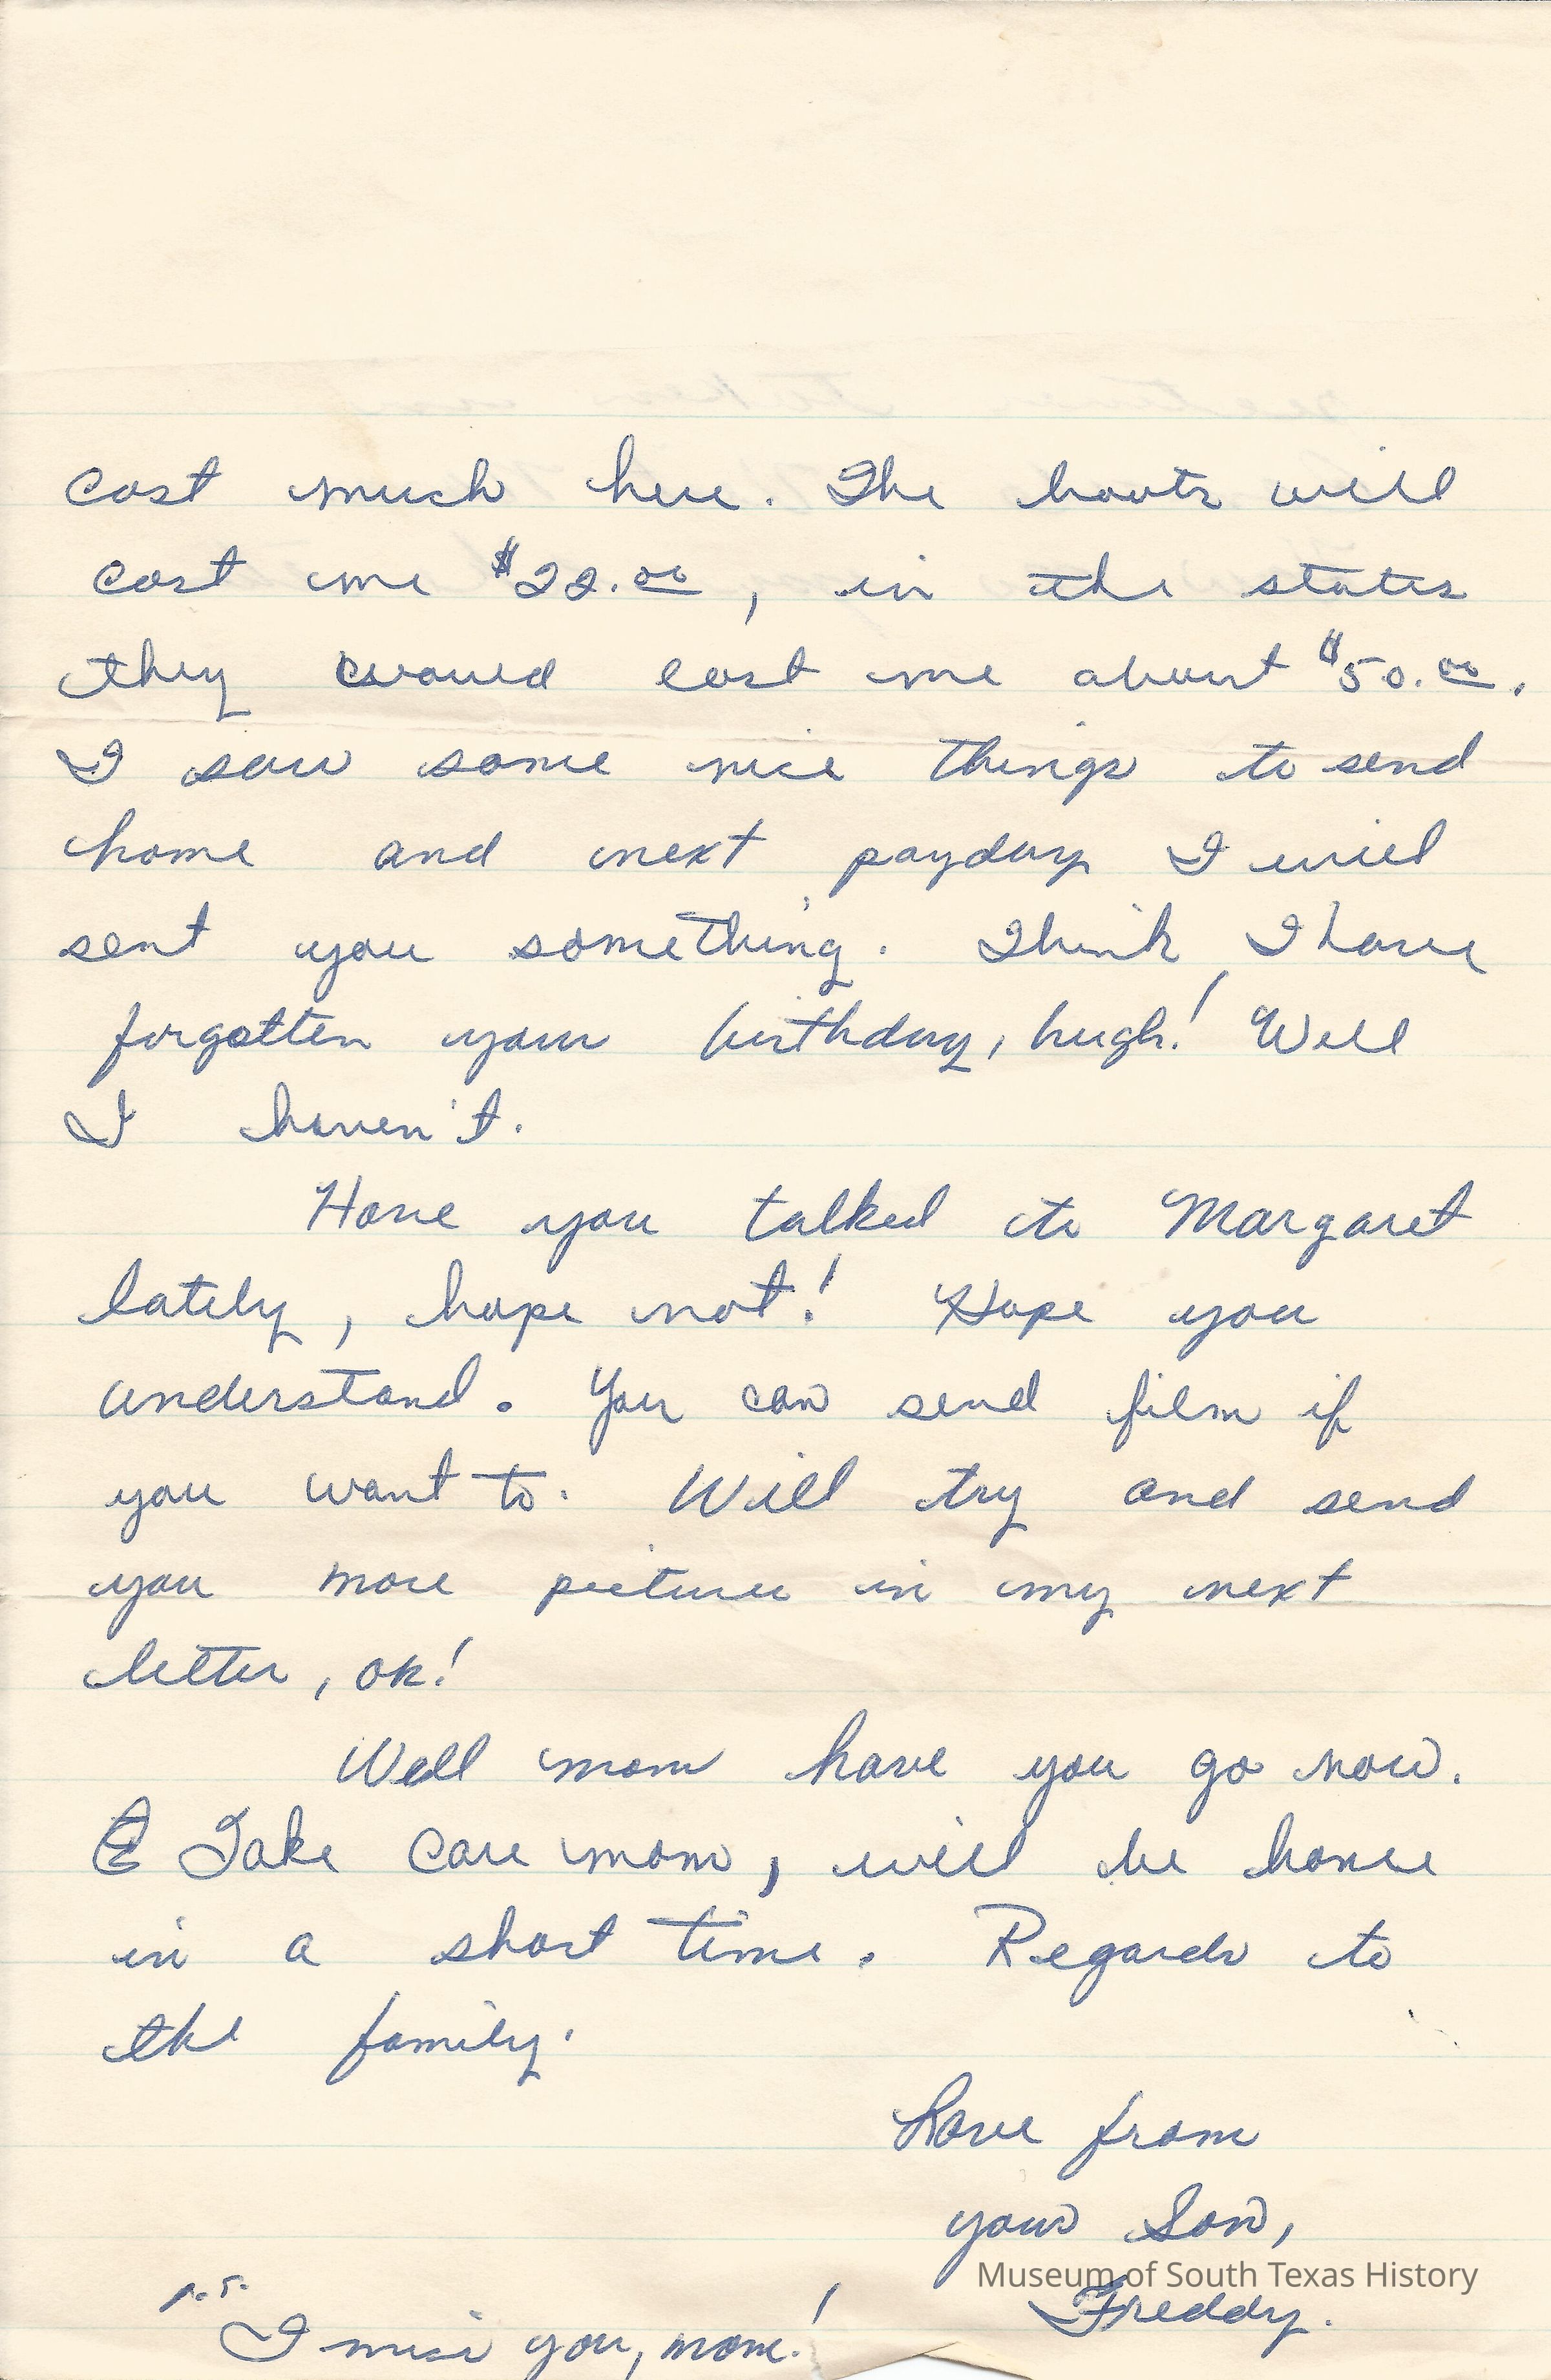 cost much here. The boots will
cost me $22.00, in the states
they would cost me about $50.00.
I saw some nice things to send
home and next payday I will
sent you something. Think I have
forgotten your birthday, hugh! Well
I haven't.
Have you talked to Margaret
lately, hope not! Hope you
understand. You can send film if
you want to. Will try and send
you more pictures in my next
letter, ok!
Well mom have you go now.
Take care mom, will be home
in a short time. Regards to
the family.
Love from
your Son,
Museum of South Texas History
Freddy.
P.S.
I miss you, mom!